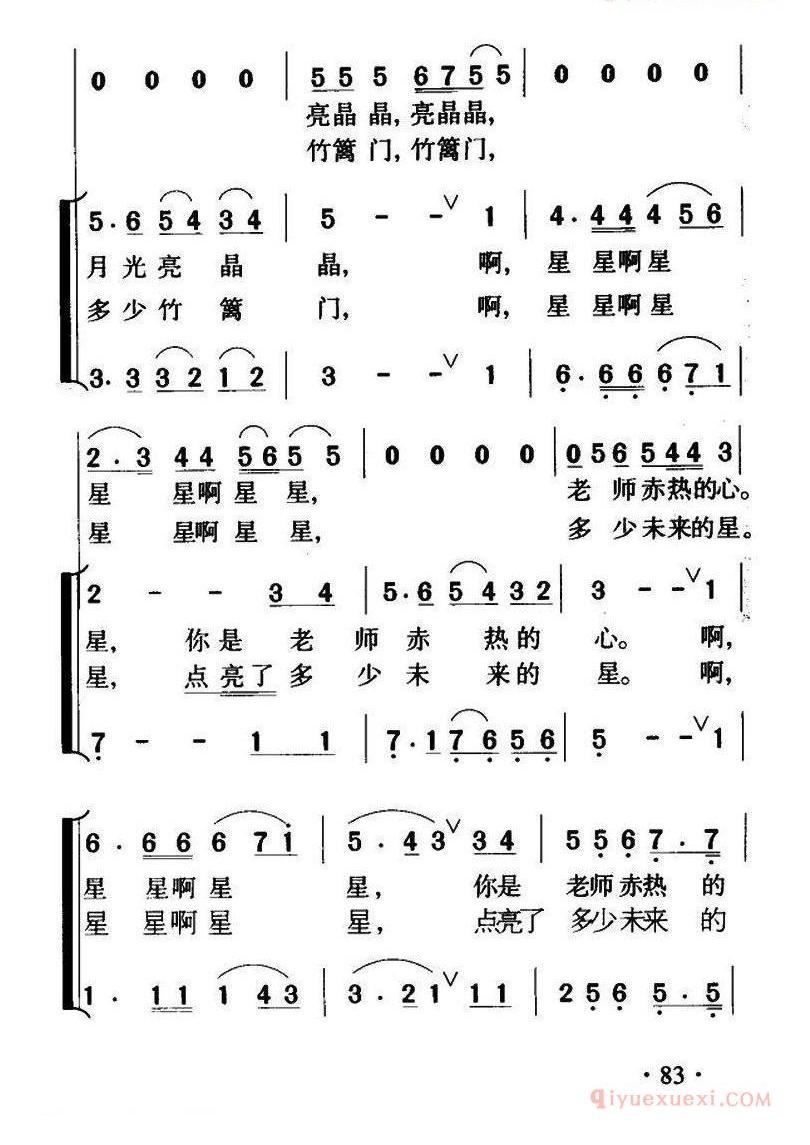 0 0 0 0 | 5 5 5 6 7 5 5 | 0 0 0 0
亮晶 晶, 亮晶晶,
竹篱 门, 竹篱门,
5 . 6 5 4 3 4 | 5 - - ∨ 1 | 4 . 4 4 4 5 6
月 光 亮 晶 晶, 啊, 星 星啊星
多 少 竹 篱 门, 啊, 星 星啊星
3 . 3 3 2 1 2 | 3 - - ∨ 1 | 6 . 6 6 6 7 1
2 . 3 4 4 5 6 5 5 | 0 0 0 0 | 0 5 6 5 4 4 3
星 星啊 星 星, 老 师赤热的心。
星 星啊 星 星, 多 少未来的星。
2 - - 3 4 | 5 . 6 5 4 3 2 | 3 - - ∨ 1
星, 你是 老 师 赤 热的 心。 啊,
星, 点亮了 多 少 未 来的 星。 啊,
7 - - 1 1 | 7 . 1 7 6 5 6 | 5 - - ∨ 1
6 . 6 6 6 7 i | 5 . 4 3 ∨ 3 4 | 5 5 6 7 . 7
星 星啊 星 星, 你是 老师赤热 的
星 星啊 星 星, 点亮了 多少未来 的
1 . 1 1 1 4 3 | 3 . 2 1 ∨ 1 1 | 2 5 6 5 . 5
· 83 ·
qiyuexuexi.COM